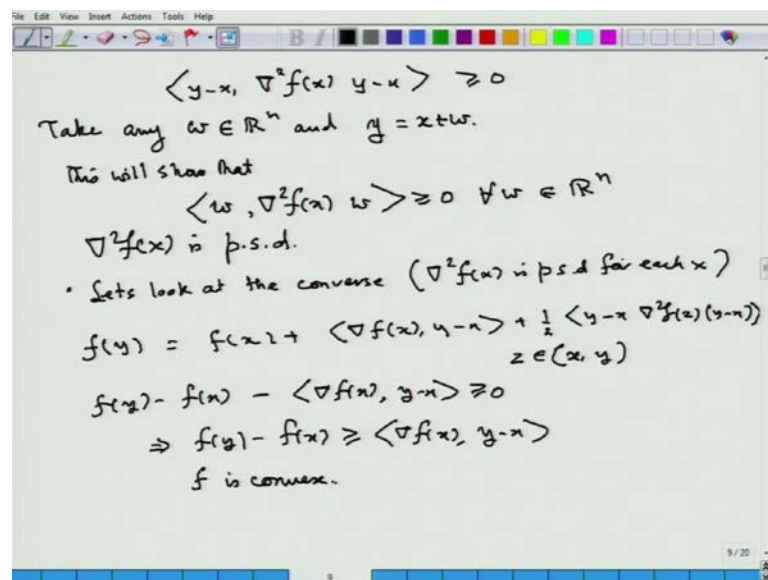 File Edit View Insert Actions Tools Help
B I
<y-x, ∇²f(x) y-x> ≥ 0
Take any w ∈ ℝⁿ and y = x+w.
This will show that
<w, ∇²f(x) w> ≥ 0 ∀ w ∈ ℝⁿ
∇²f(x) is p.s.d.
• Lets look at the converse (∇²f(x) is p.s.d for each x)
f(y) = f(x) + <∇f(x), y-x> + 1/2 <y-x ∇²f(z)(y-x)>
z ∈ (x, y)
f(y) - f(x) - <∇f(x), y-x> ≥ 0
⇒ f(y) - f(x) ≥ <∇f(x), y-x>
f is convex.
9/20
9